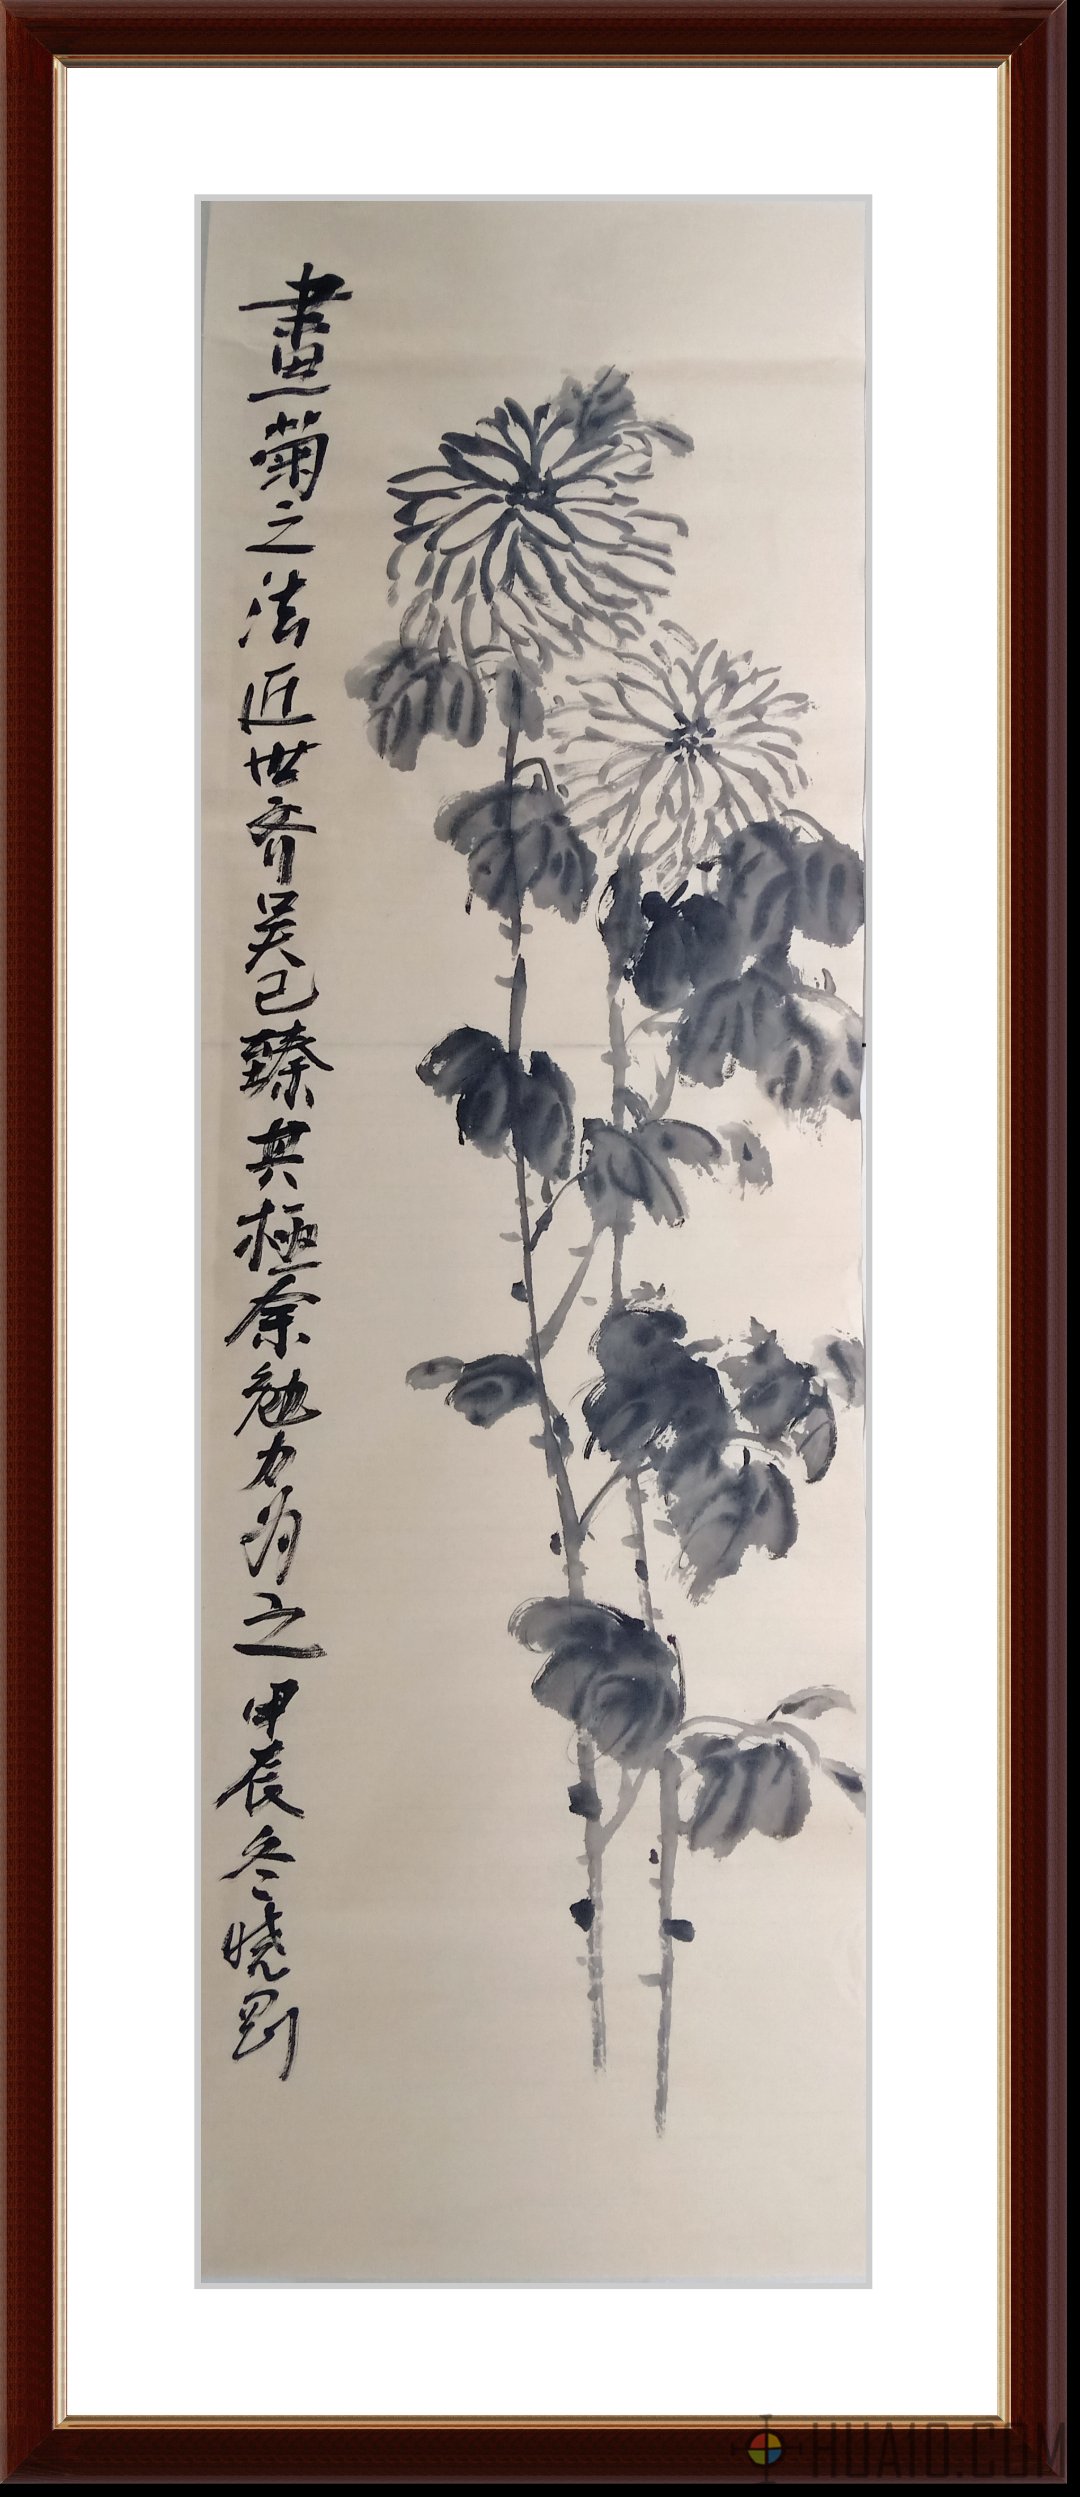 畫菊之法近世齐吴已臻其極余勉力为之甲辰冬晓剛
HUA10.COM